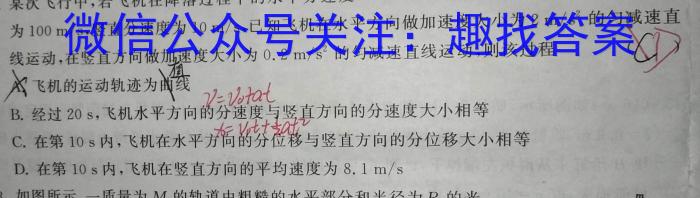 某次飞行中,若飞机在降落过程中的水平分速度
为 100 m/s,竖直分速度为 10 m/s,已知飞机在水平方向做加速度大小为 2 m/s² 的匀减速直
微信公众号关注：趣找答案
线运动,在竖直方向做加速度大小为 0.2 m/s² 的匀减速直线运动,则该过程
(D)
直
A. 飞机的运动轨迹为曲线
v=v₀+at
B. 经过 20 s,飞机水平方向的分速度与竖直方向的分速度大小相等
x=v₀t+½at²
C. 在第 10 s 内,飞机在水平方向的分位移与竖直方向的分位移大小相等
D. 在第 10 s 内,飞机在竖直方向的平均速度为 8.1 m/s
如图所示,一质量为 M 的轨道由粗糙的水平部分和半径为 R 的光